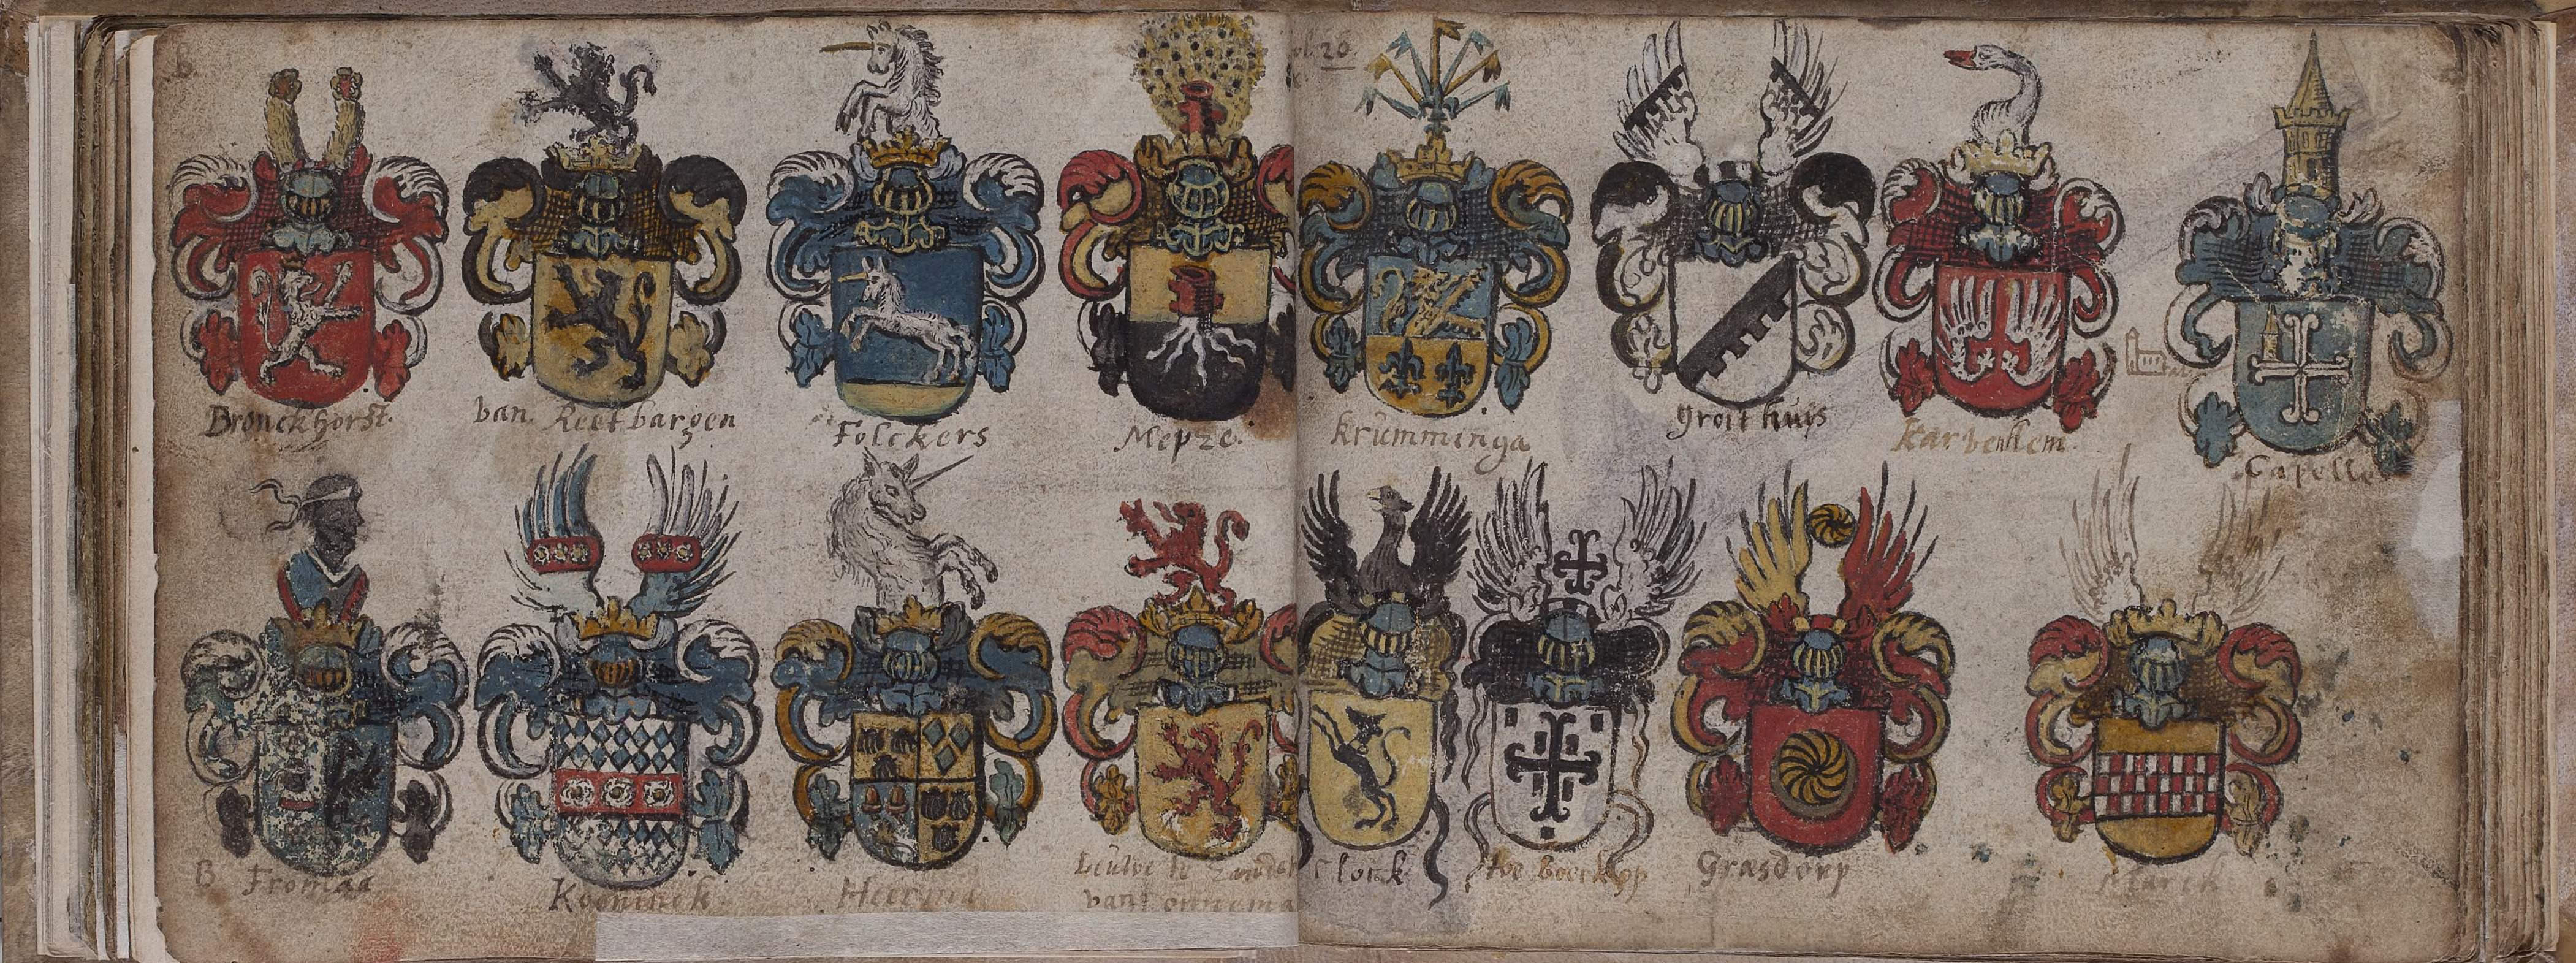 26
Bronckhorst.
van. Reetbargen
Folckers
Mepze.
Krumminga
groithuis
Karvenhem.
Capelle
B Fromaa
Kooninck
Heerma
Leuwe te
van
Clotk
toe Boerkop
Græsdorp
Marck